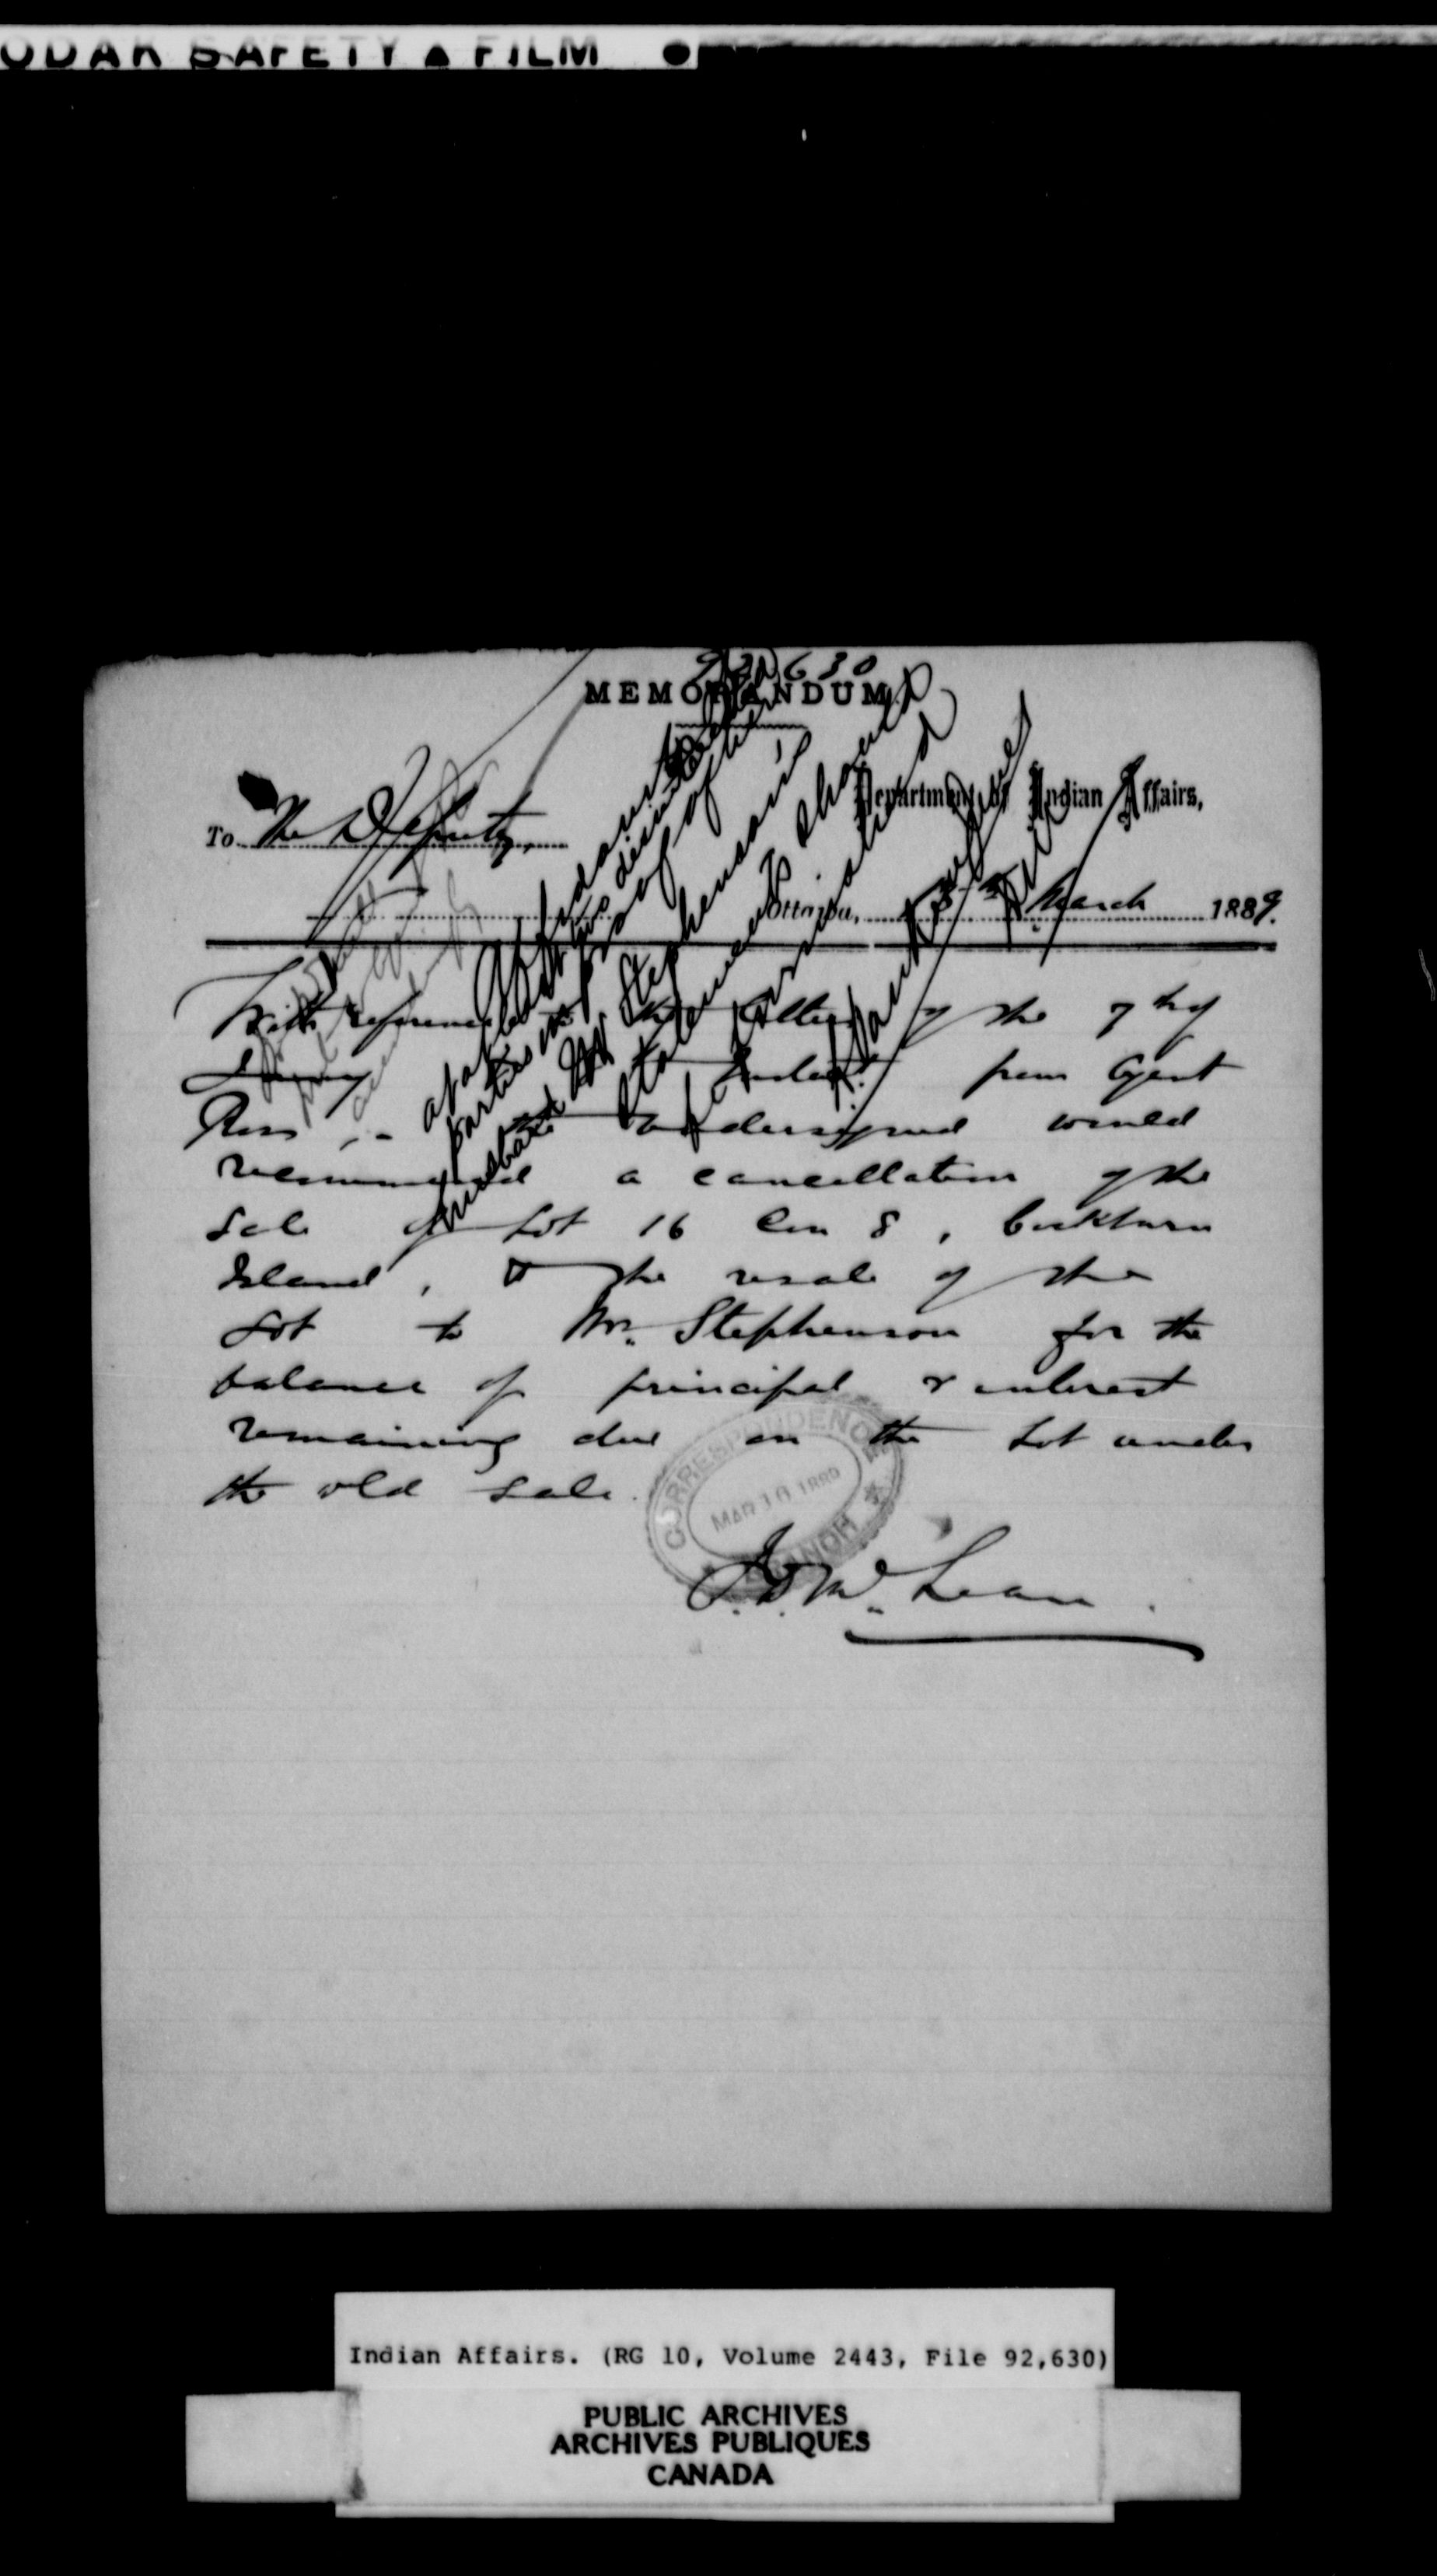 KODAK SAFETY ▲ FILM
92630
MEMORANDUM
To The Deputy,
Department of Indian Affairs,
Ottawa, 15th March 1889.
With reference to the letter of the 7th of
from Agent
Ross, the undersigned would
recommend a cancellation of the
sale of Lot 16 Con 8, Cockburn
Island, & the resale of the
Lot to Mr. Stephenson for the
balance of principal & interest
remaining due on the Lot under
the old sale.
J. D. McLean.
CORRESPONDENCE
MAR 16 1889
BRANCH
Affidavit
at least two disinterested
parties in proof of the
husband Mr Stephenson's
statement should
be furnished
Indian Affairs. (RG 10, Volume 2443, File 92,630)
PUBLIC ARCHIVES
ARCHIVES PUBLIQUES
CANADA